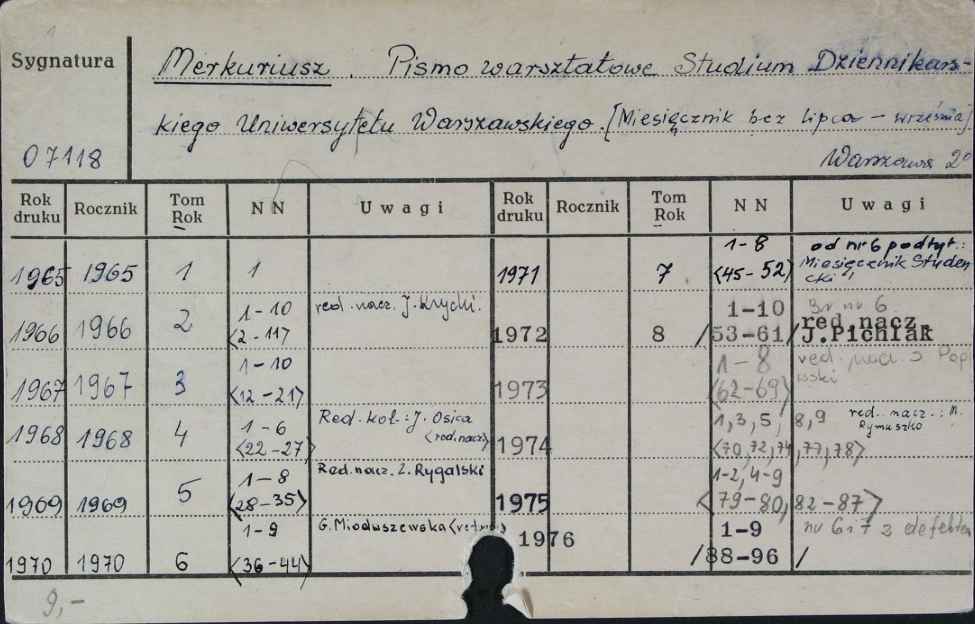 Sygnatura
Merkuriusz. Pismo warsztatowe Studium Dziennikars-
kiego Uniwersytetu Warszawskiego. [Miesięcznik bez lipca – września]
07118 Warszawa 2°
Rok druku Rocznik Tom Rok NN Uwagi Rok druku Rocznik Tom Rok NN Uwagi
1965 1965 1 1
1971 7 1-8 <45-52> od nr 6 podtyt.: Miesięcznik Studencki
1966 1966 2 1-10 <2-11> red. nacz. J. Krycki.
1972 8 1-10 /53-61/ nr 6 red.nacz. J.Pichlak
1967 1967 3 1-10 <12-21>
1973 1-8 <62-69> red. nacz.
1968 1968 4 1-6 <22-27> Red. kol.: J. Osica <red. nacz>
1974 1,3,5, 8,9 <70,72,74,77,78> red. nacz.: Rymuszko
1969 1969 5 1-8 <28-35> Red. nacz. Z. Rygalski
1975 1-2, 4-9 <79-80, 82-87>
1970 1970 6 1-9 <36-44> G. Mioduszewska
1976 1-9 /88-96/ nr 6 i 7 z defektem
9,-